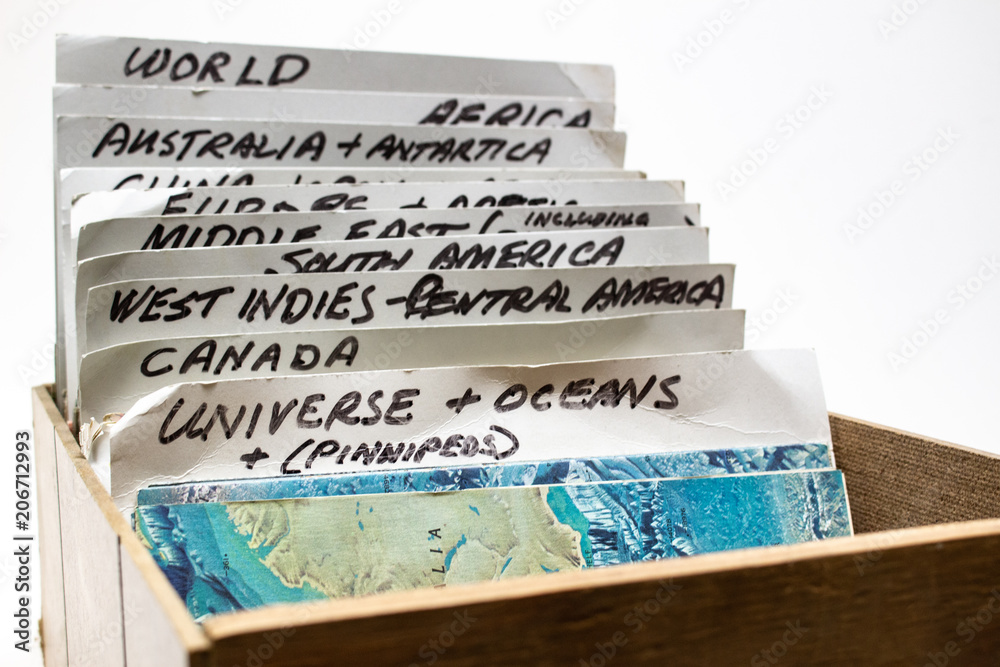 WORLD
AFRICA
AUSTRALIA + ANTARTICA
CHINA
EUROPE + ARCTIC
MIDDLE EAST (INCLUDING
SOUTH AMERICA
WEST INDIES - CENTRAL AMERICA
CANADA
UNIVERSE + OCEANS
+ (PINNIPEDS)
ALIA
Adobe Stock | #206712993